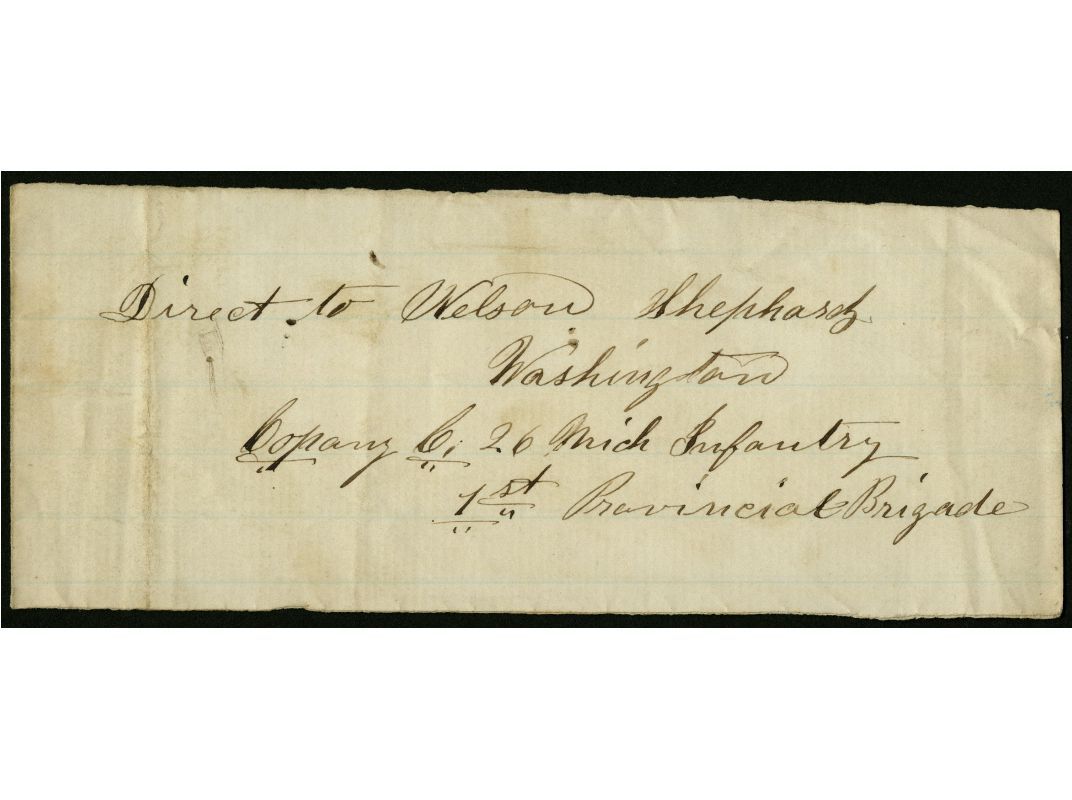 Direct to Nelson Shephard
Washington
Copany C, 26 Mich Infantry
1st Provincial Brigade